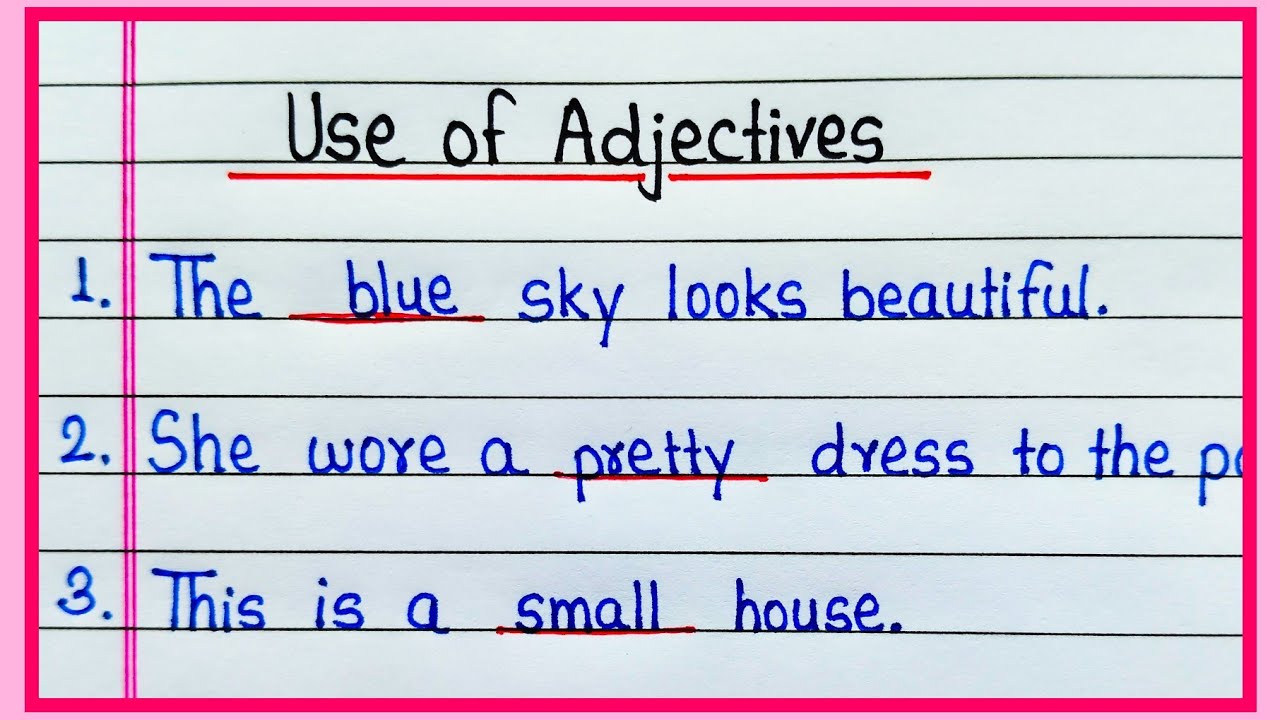 Use of Adjectives
1. The blue sky looks beautiful.
2. She wore a pretty dress to the
3. This is a small house.